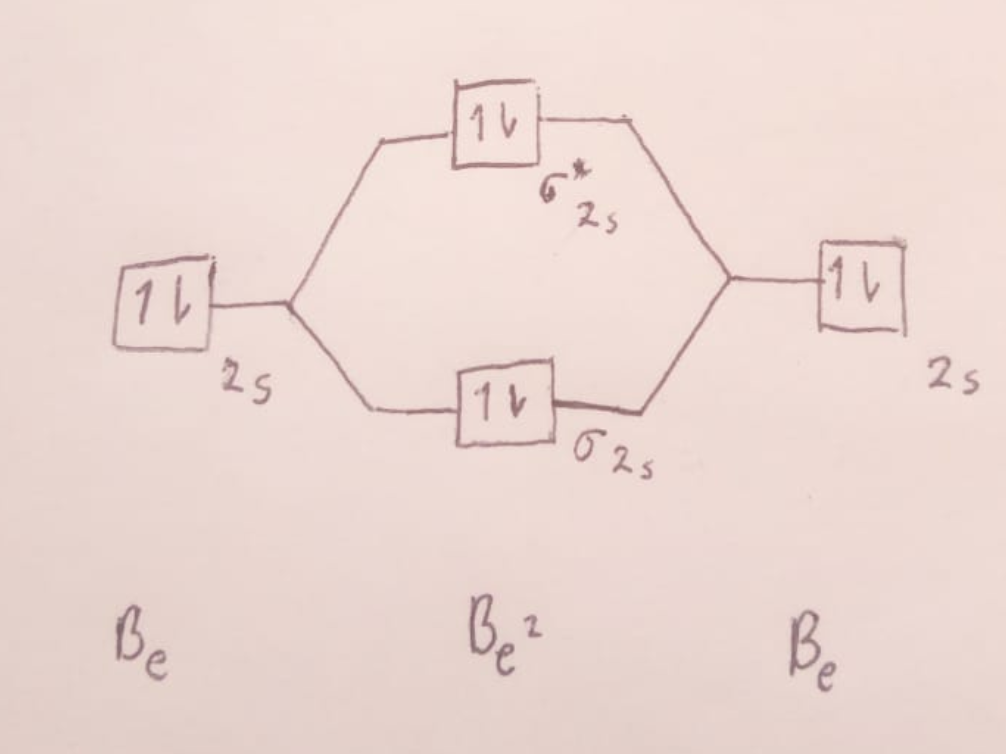 1⇂
σ*2s
1⇂ 1⇂
2s 2s
1⇂
σ2s
Be Be2 Be